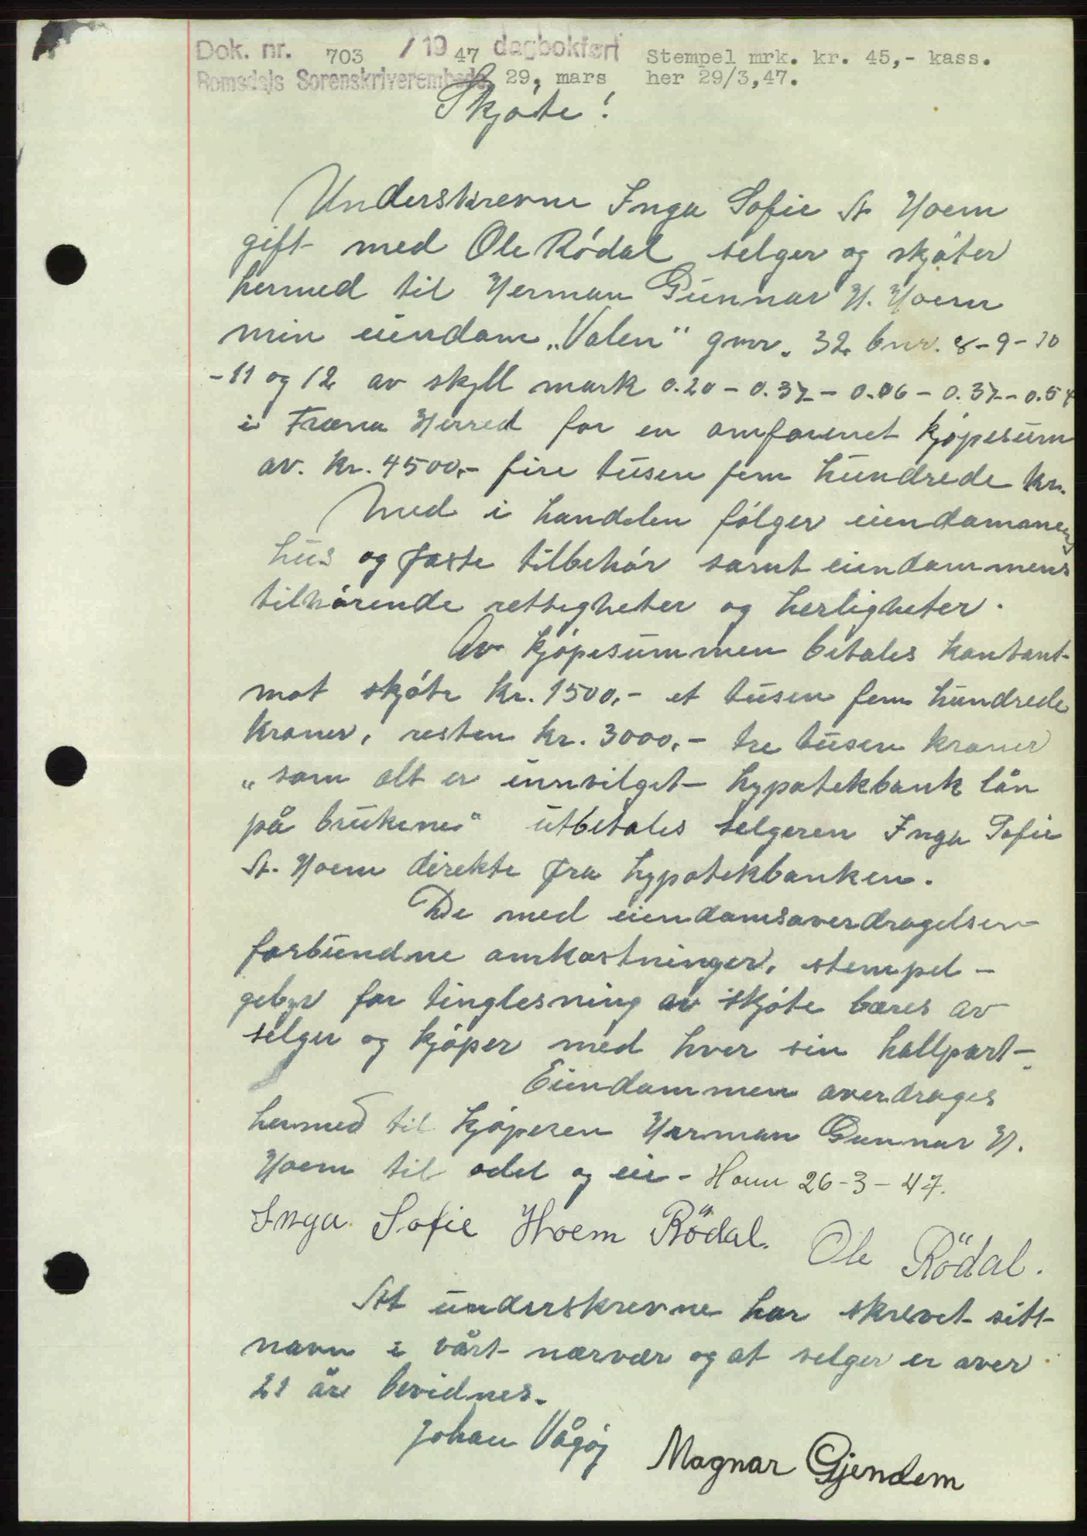 Dok. nr. 703 /19 47 dagbokført Stempel mrk. kr. 45,- kass.
Romsdals Sorenskriverembede 29, mars her 29/3,47.
Skjøte!
Underskrevne Inga Sofie A. Hoem
gift med Ole Rødal selger og skjøter
hermed til Herman Gunnar H. Hoem
min eiendom „Valen" gnr. 32 bnr. 8-9-10
-11 og 12 av skyll mark 0.20-0.37-0.06-0.37-0.54
i Fræna Herred for en omforenet kjøpesum
av. kr. 4500,- fire tusen fem hundrede kr.
Med i handelen følger eiendomanens
hus og faste tilbehør samt eiendommens
tilhørende rettigheter og herligheter.
Av kjøpesummen betales kontant
mot skjøte kr. 1500,- et tusen fem hundrede
kroner, resten kr. 3000,- tre tusen kroner
„som alt er innvilget hypotekbank lån
på brukene" utbetales selgeren Inga Sofie
A. Hoem direkte fra hypotekbanken.
De med eiendomsoverdragelsen
forbundne omkostninger, stempel-
gebyr for tinglesning av skjøte bæres av
selger og kjøper med hver sin hallpart-.
Eiendommen overdrages
hermed til kjøperen Herman Gunnar H.
Hoem til odel og eie - Hoem 26-3-47.
Inga Sofie Hoem Rödal. Ole Rödal.
At underskrevne har skrevet sitt
navn i vårt nærvær og at selger er over
21 år bevidnes.
Johan Vågøy Magnar Gjendem